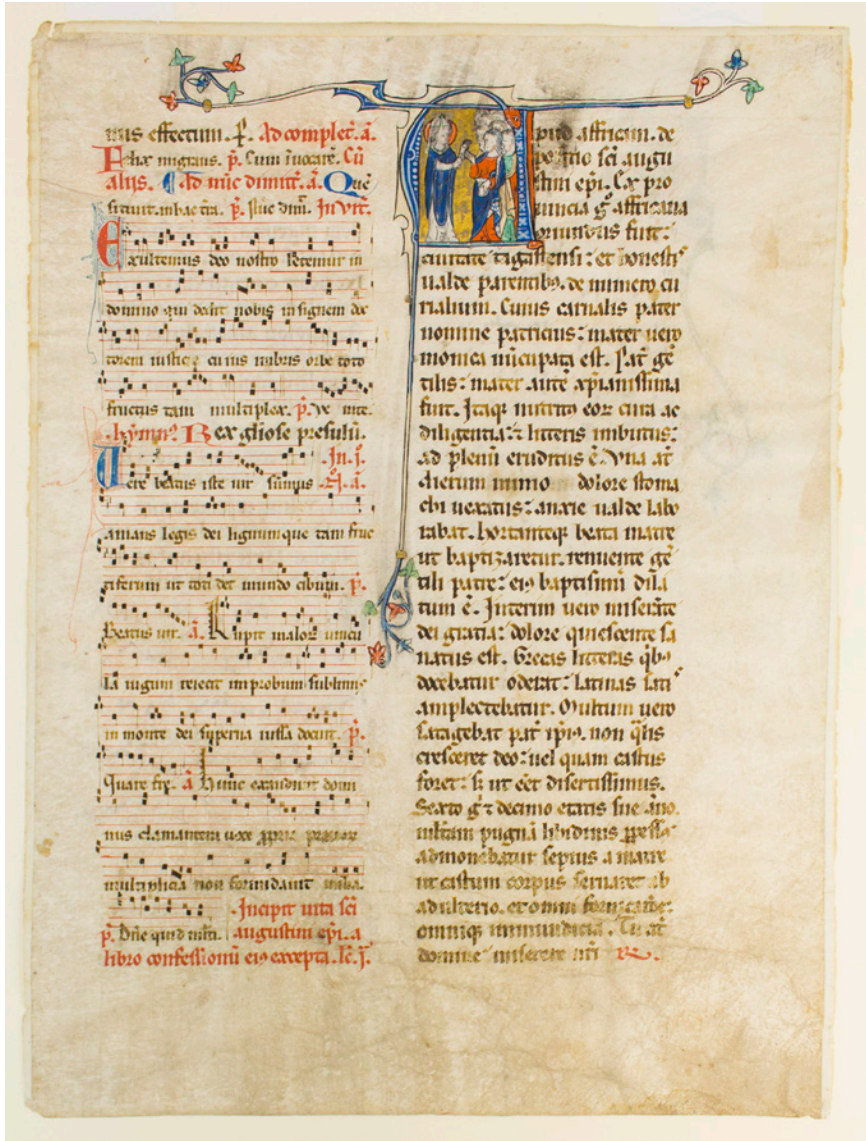 mis effectum. ℟. Ad complet̄. a̅.
Felix migrans. p̄. Cum īvocarē. Cū
aliis. Ad nūc dimit̄. a̅. Que
sitiuit. in hac t̄ra. p̄. Nūc dim̄. Inuit̄.
Exultemus deo nostro letemur in
domino qui dedit nobis insignem doc
torem iusticie cuius imbris orbe toto
fructus tam multiplex. p̄. Ve nite.
hymn⁹. Rex gl̄iose presulū.
In .j.
Uere beatus iste uir summus N̄. a̅.
amans legis dei lignumque tam fruc
tiferum ut toti det mundo cibum. p̄.
Beatus uir. a̅. Rupit maloꝝ uincu
la iugum reiecit improbum sublimis
in monte dei superna iussa docuit. p̄.
Quare fre. a̅. Hunc exaudiuit domi
nus clamantem uoce ꝓpria
multiplicia non formidauit milia.
Incipit uita sc̄i
p̄. Dn̄e quid m̄lti. augustini ep̄i. a
libro confessionū ei⁹ excepta. lc̄. j̄.
Apud affricam. de
po sitio sc̄i augu
stini ep̄i. Ex pro
uincia g̊ affricana
oriundus fuit:
ciuitate tigastensi: et honestis
ualde parentib⁹. de numero cu
rialium. Cuius carnalis pater
nomine patricius: mater uero
monica nūcupata est. Pat̄ gē
tilis: mater autē xp̄ianissima
fuit. Itaq; nutritus eoꝝ cura ac
diligentia: ⁊ litteris imbutus:
ad plenū eruditus ē. Vna at̄
dierum nimio dolore stoma
chi uexatus: anxie ualde labo
rabat. hortanteq; beata matre
ut baptizaretur. renuente gē
tili patre: ei⁹ baptismū dila
tum ē. Interim uero miserāte
dei gratia: dolore quiescente sa
natus est. Grecas litteras qb⁹
docebatur oderat: latinas sati⁹
amplectebatur. Multum uero
satagebat pat̄ ip̄i⁹. non q̄lis
cresceret deo: uel quam castus
foret: s; ut eēt disertissimus.
Sexto g̊ ⁊ decimo etatis sue āno.
multam pugnā libidinis
admonebatur sepius a matre
ut castum corpus seruaret ab
adulterio. et omni fornicatiōe:
omniq; inmundicia. Tu at̄
domine miserere nr̄i ℟.